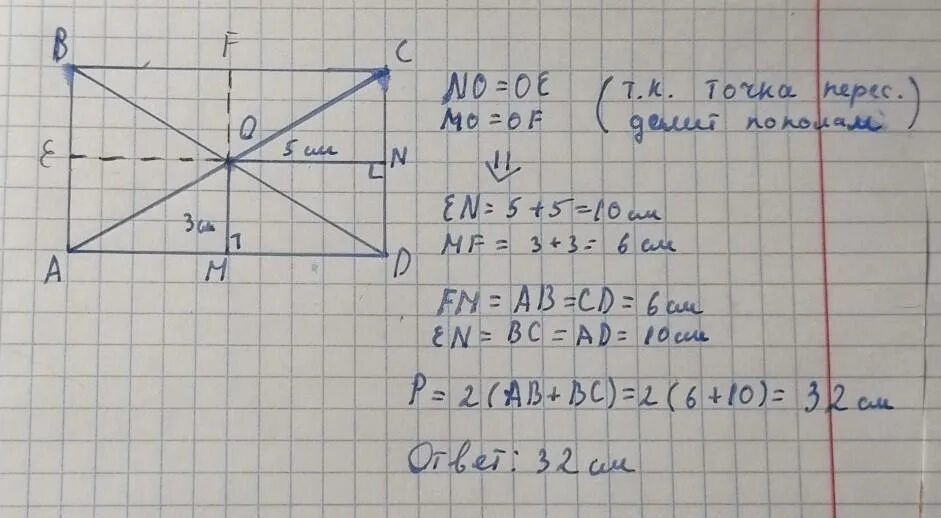 B F C
O
E 5 см N
3 см
A M D
NO = OE (т.к. точка перес.
MO = OF делит пополам)
⇓
EN = 5 + 5 = 10 см
MF = 3 + 3 = 6 см
FM = AB = CD = 6 см
EN = BC = AD = 10 см
P = 2(AB + BC) = 2(6 + 10) = 32 см
Ответ: 32 см